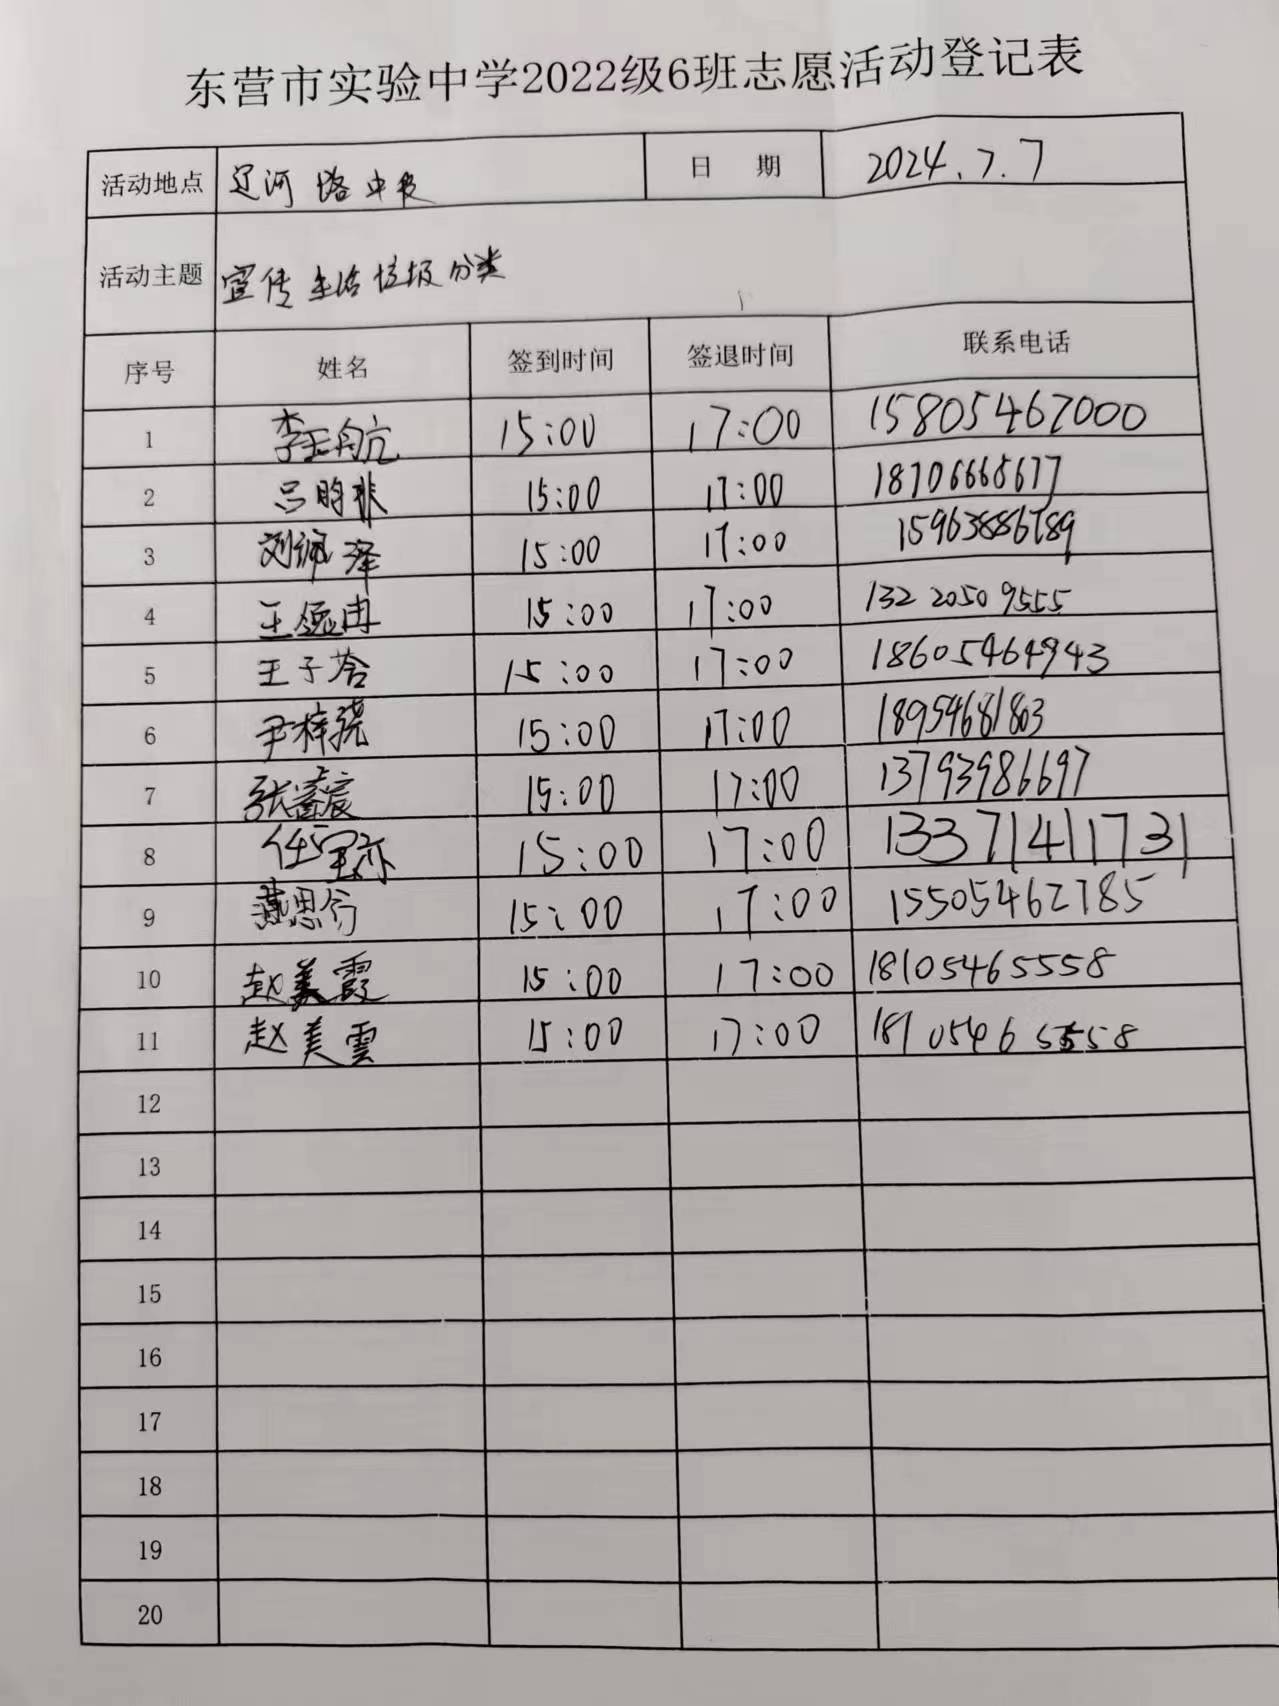 东营市实验中学2022级6班志愿活动登记表
活动地点 辽河路中段 日 期 2024.7.7
活动主题 宣传生活垃圾分类
序号 姓名 签到时间 签退时间 联系电话
1 李玉航 15:00 17:00 15805467000
2 吕昀非 15:00 17:00 18706668677
3 刘佩泽 15:00 17:00 15963886789
4 王逸冉 15:00 17:00 132 2050 9555
5 王子荅 15:00 17:00 18605464943
6 尹梓骁 15:00 17:00 18954681803
7 张鑫宸 15:00 17:00 13793986697
8 任宝亦 15:00 17:00 13371411731
9 燕思行 15:00 17:00 15505462785
10 赵美霞 15:00 17:00 18105465558
11 赵美雲 15:00 17:00 18105465558
12
13
14
15
16
17
18
19
20